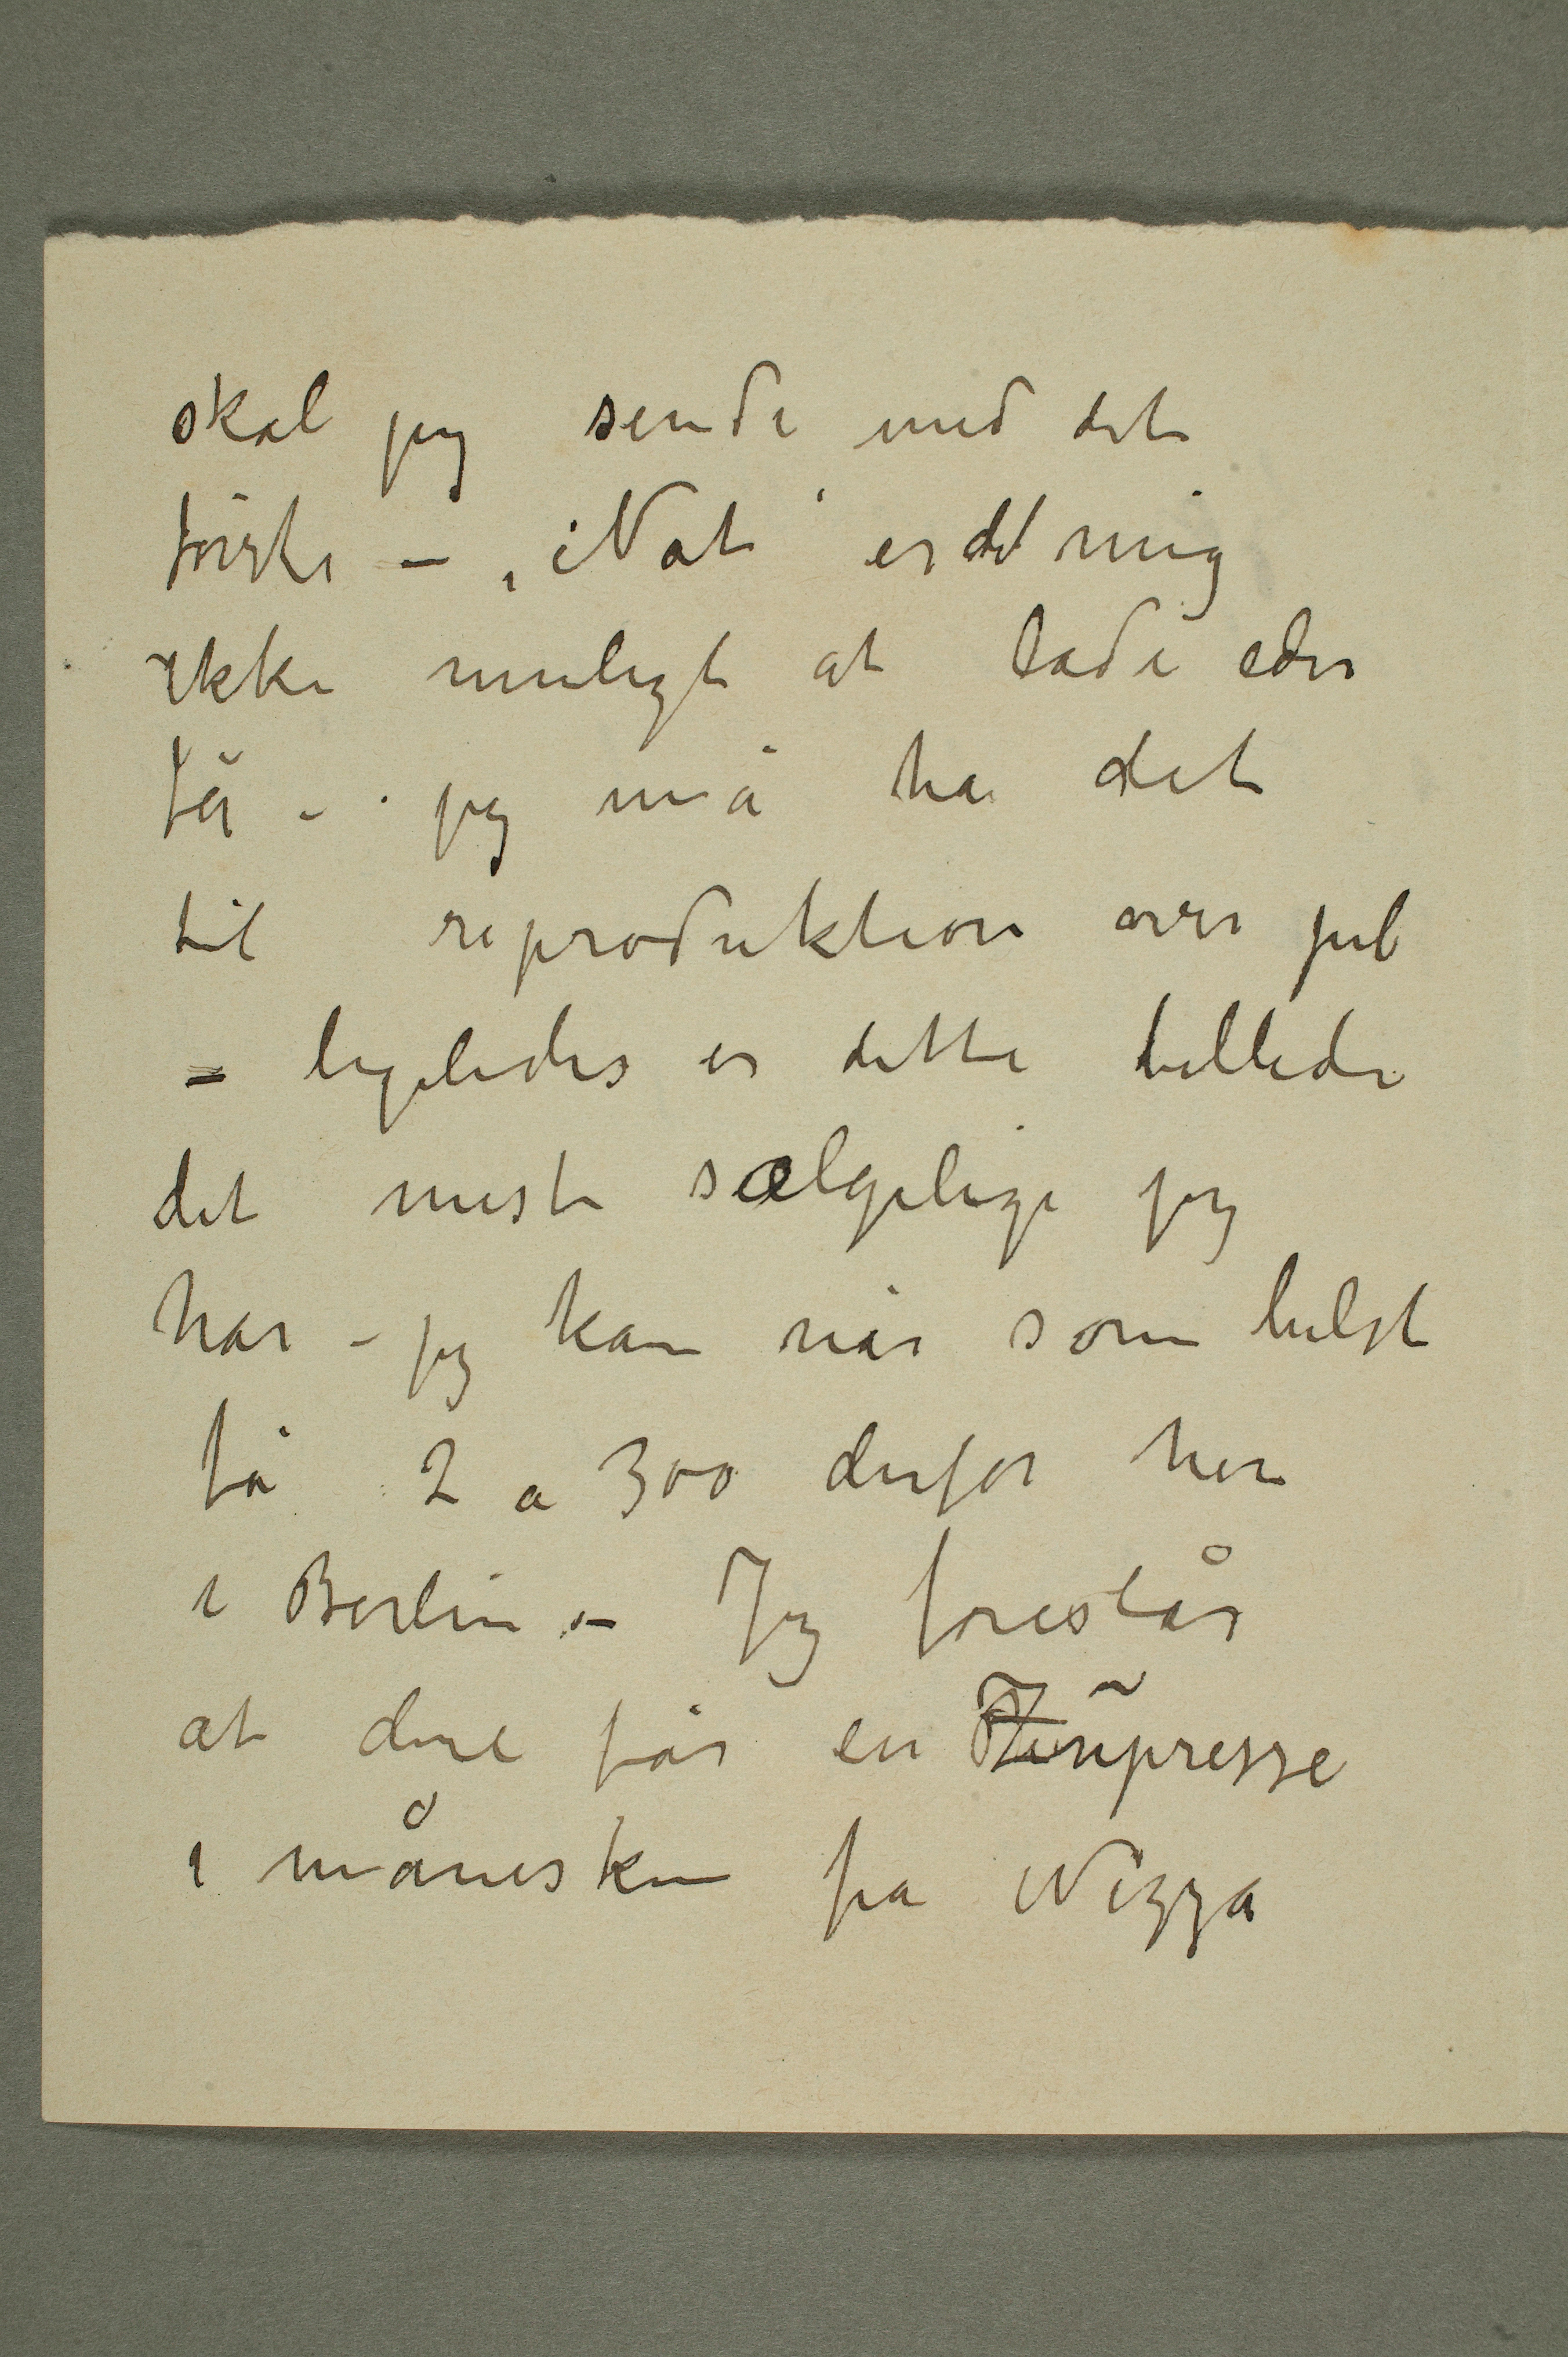 skal jeg sende med det
første – „Nat“ er det mig
ikke muligt at lade eder
få – jeg må ha det
til reproduktion over jul
– ligeledes er dette billede
det mest sælgelige jeg
har – jeg kan når som helst
få 2 a 300 derfor her
i Berlin. – Jeg foreslår
at dere får en
i måneskin fra Nizza